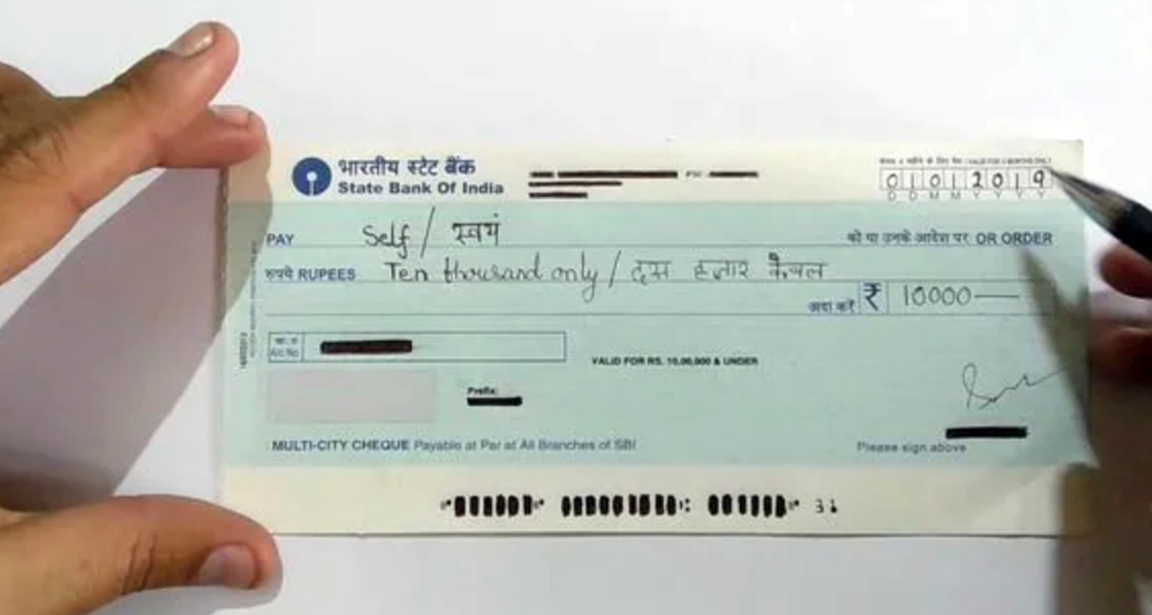 भारतीय स्टेट बैंक
State Bank Of India
01012019
D D M M Y Y Y Y
PAY Self / स्वयं को या उनके आदेश पर OR ORDER
रुपये RUPEES Ten thousand only / दस हजार केवल
अदा करें ₹ 10000—
A/c No
VALID FOR RS. 10,00,000 & UNDER
Prefix:
MULTI-CITY CHEQUE Payable at Par at All Branches of SBI
Please sign above
31